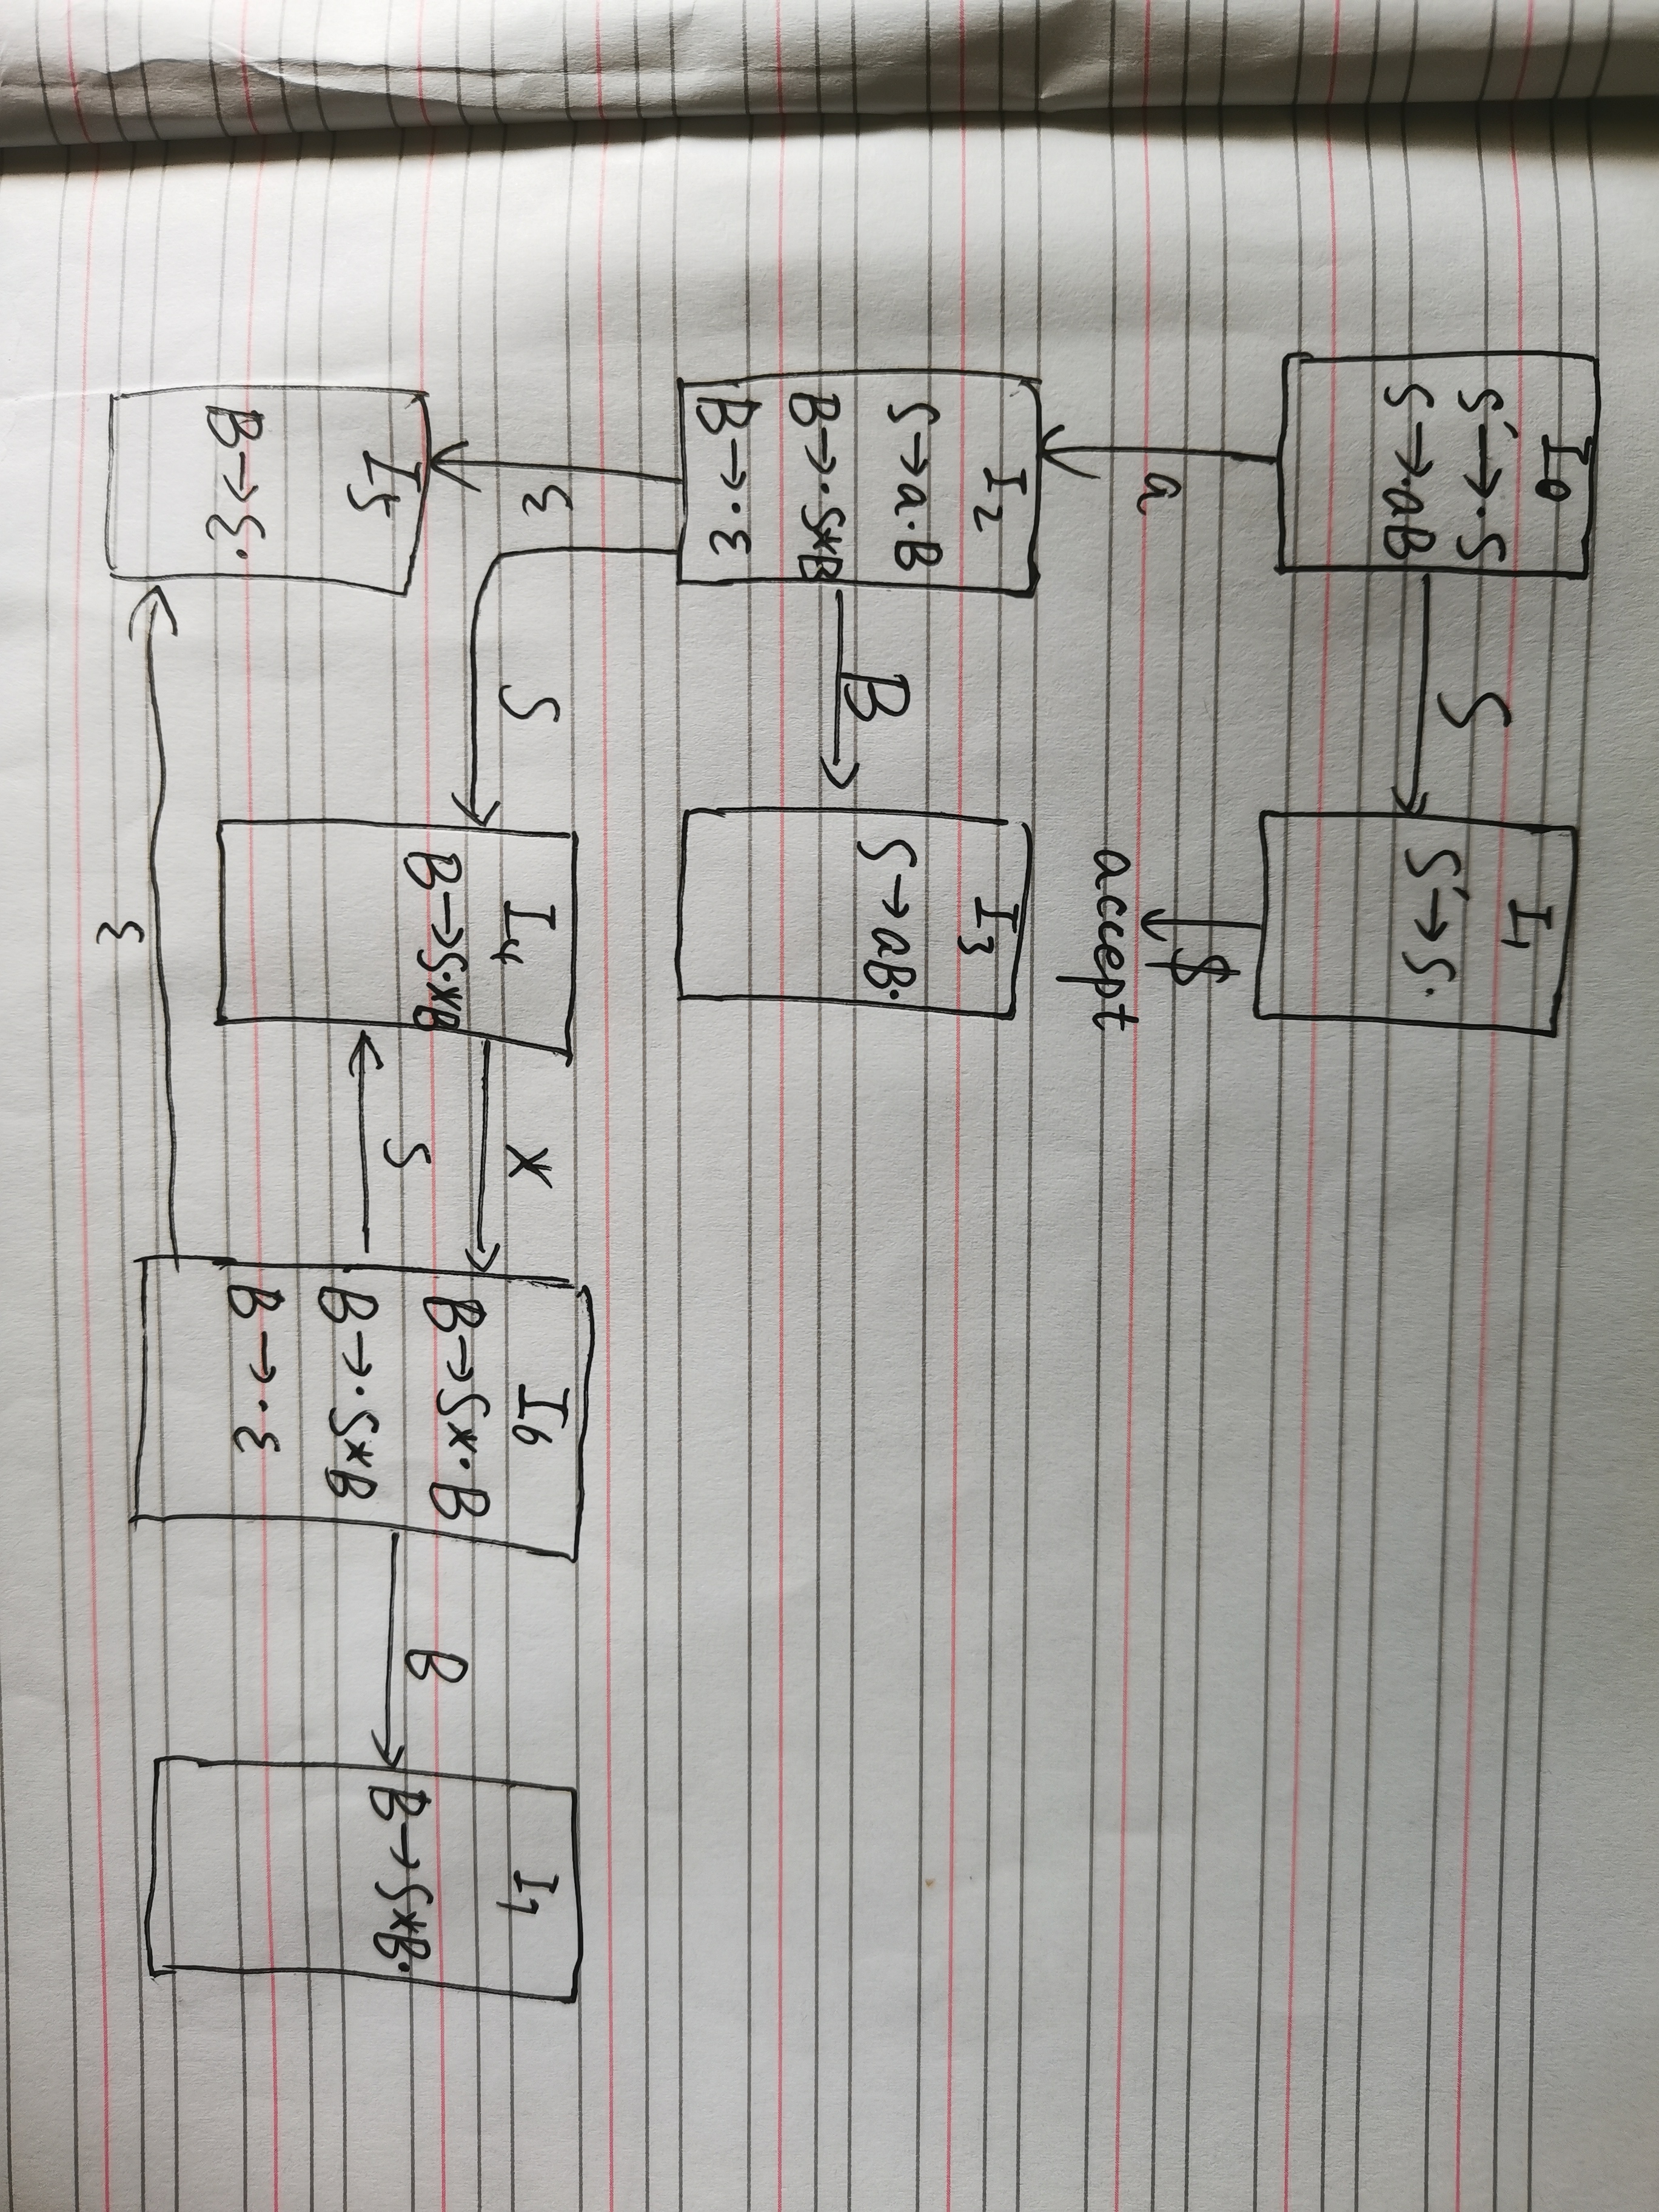 I0
S′→·S
S→·aB
S
I1
S′→S·
a
$
accept
I2
S→a·B
B→·S*B
B→·ε
B
I3
S→aB·
ε
S
I4
B→S·*B
*
S
I6
B→S*·B
B→·S*B
B→·ε
B
I7
B→S*B·
I5
B→ε·
ε